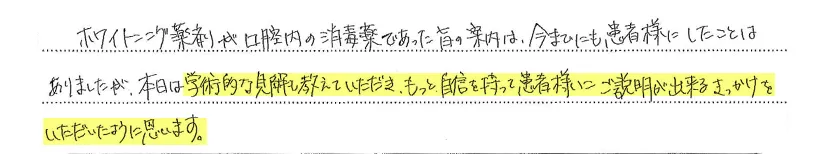 ホワイトニング薬剤が口腔内の消毒薬であった旨の案内は、今までにも患者様にしたことは
ありましたが、本日は学術的な見解も教えていただき、もっと自信を持って患者様にご説明が出来るきっかけを
いただいたように思います。